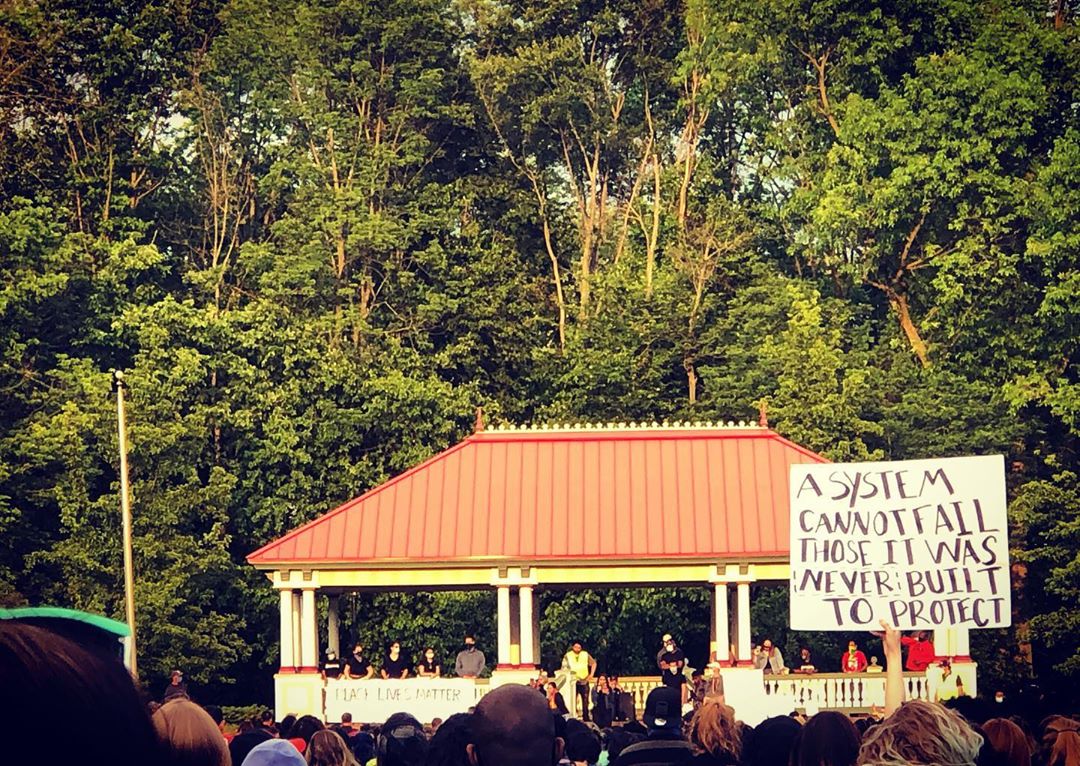 A SYSTEM
CANNOT FAIL
THOSE IT WAS
NEVER BUILT
TO PROTECT
BLACK LIVES MATTER